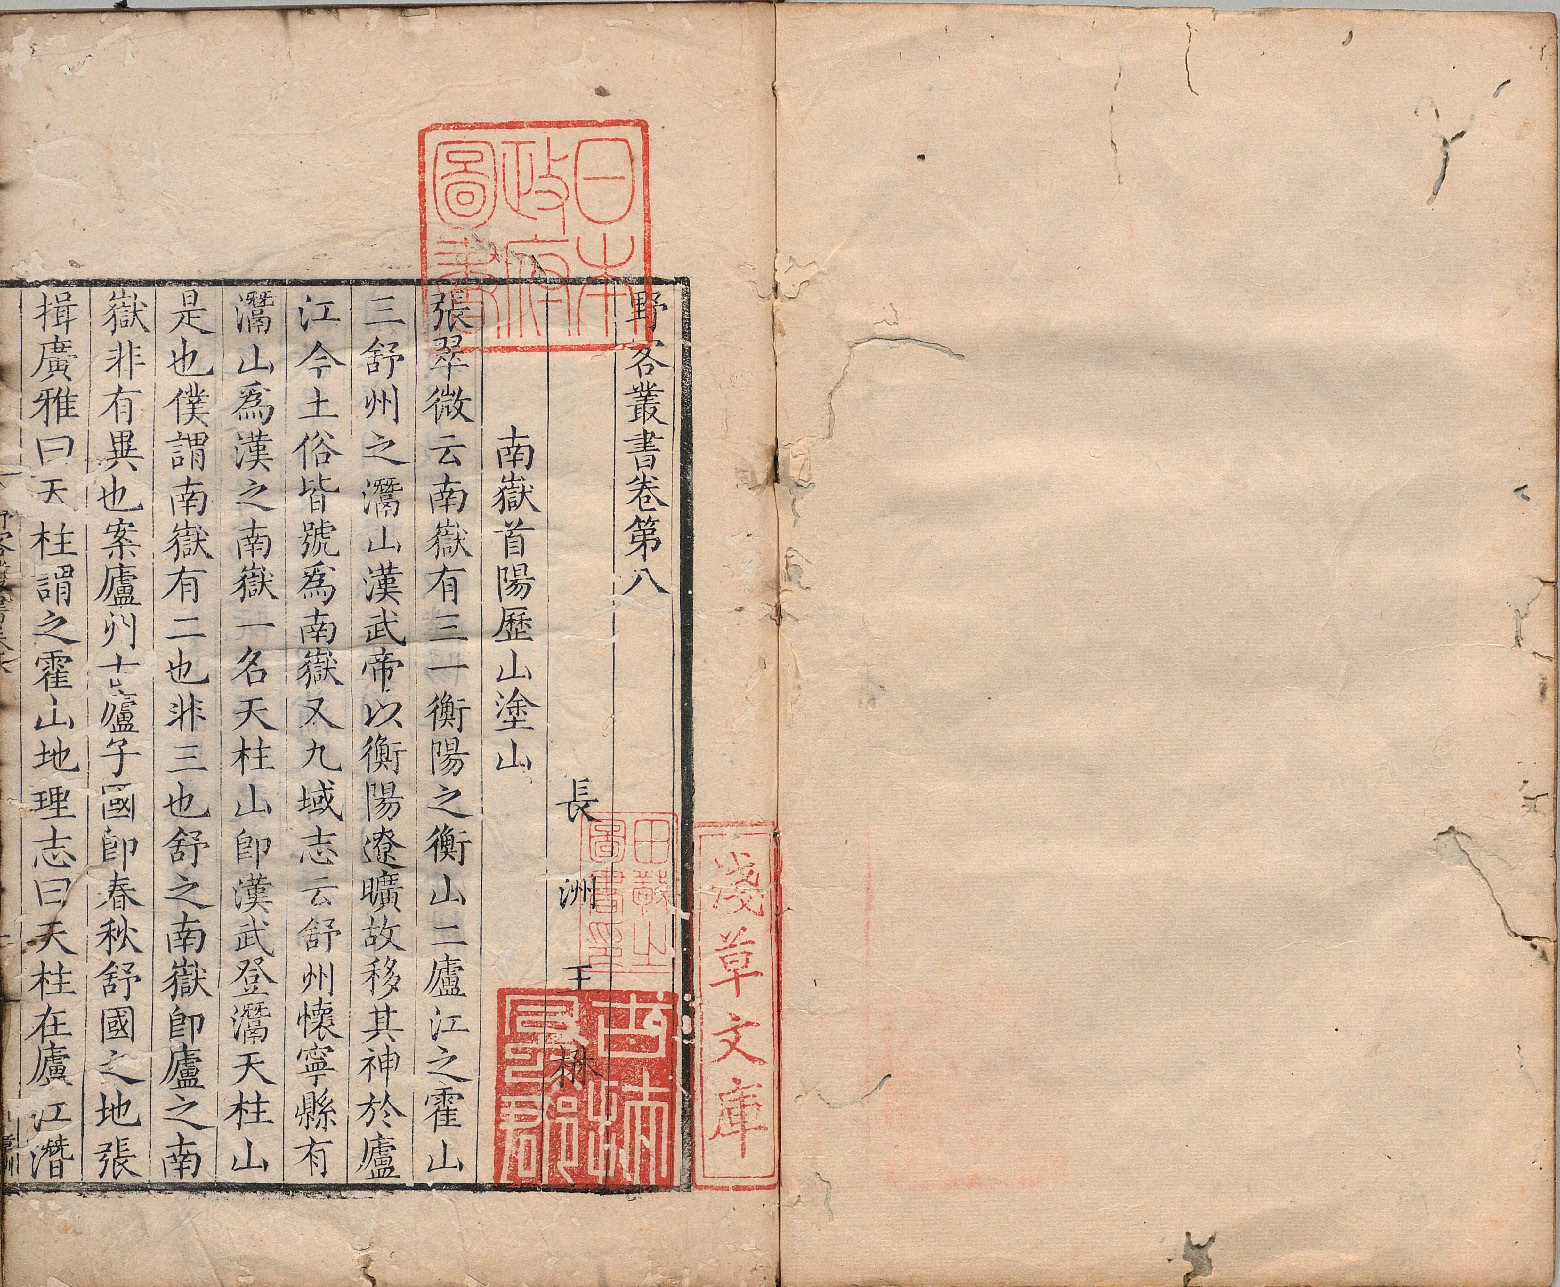 野客叢書卷第八
長洲王楙
南嶽首陽歷山塗山
張翠微云南嶽有三一衡陽之衡山二廬江之霍山
三舒州之灊山漢武帝以衡陽遼曠故移其神於廬
江今土俗皆號爲南嶽又九域志云舒州懷寧縣有
灊山爲漢之南嶽一名天柱山卽漢武登灊天柱山
是也僕謂南嶽有二也非三也舒之南嶽卽廬之南
嶽非有異也案廬州古廬子國卽春秋舒國之地張
揖廣雅曰天柱謂之霍山地理志曰天柱在廬江潛
日本
政府
圖書
淺草文庫
圖書